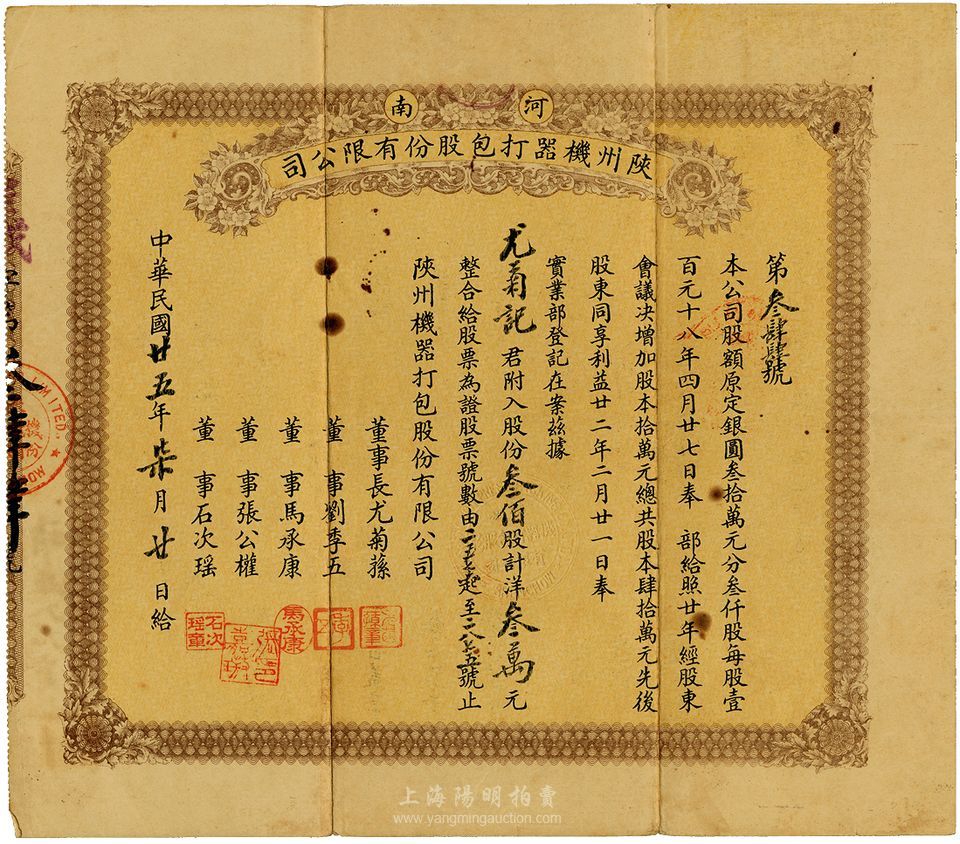 河南
陝州機器打包股份有限公司
第叁肆肆號
本公司股額原定銀圓叁拾萬元分叁仟股每股壹
百元十八年四月廿七日奉 部給照廿年經股東
會議決增加股本拾萬元總共股本肆拾萬元先後
股東同享利益廿二年二月廿一日奉
實業部登記在案茲據
尤菊記 君附入股份叁佰股計洋叁萬元
整合給股票為證股票號數由 起至 號止
陝州機器打包股份有限公司
董事長尤菊蓀
董事劉季五
董事馬承康
董事張公權
董事石次瑶
中華民國廿五年柒月廿日給
馬承康
張公
嘉璈
石次
瑶章
LIMITED.
上海陽明拍賣
www.yangmingauction.com